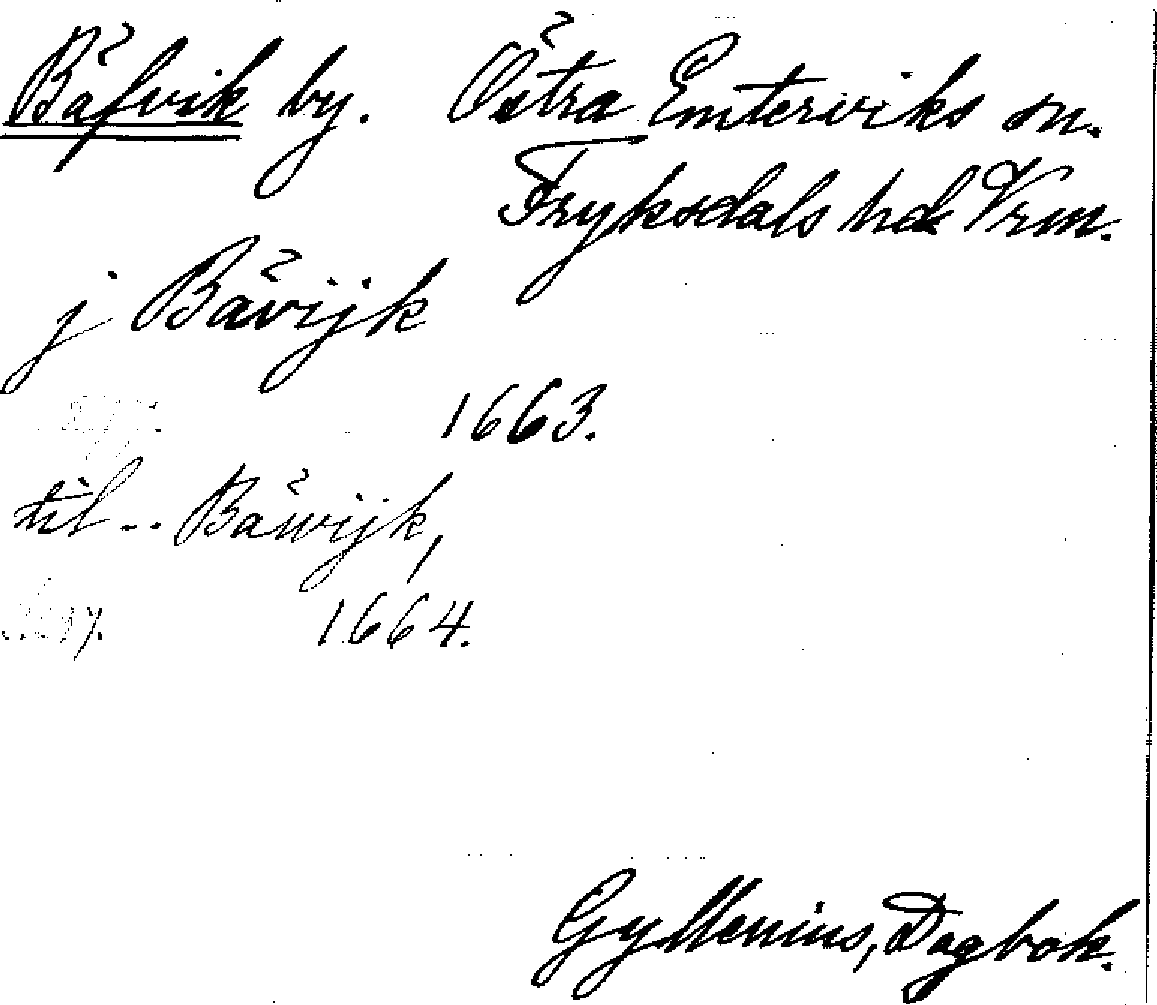 Bäfvik by. Östra Emterviks sn.
Fryksdals hd Vrm.
j Bävijk
1663.
til -- Bäwijk,
1664.
Gyllenius, Dagbok.